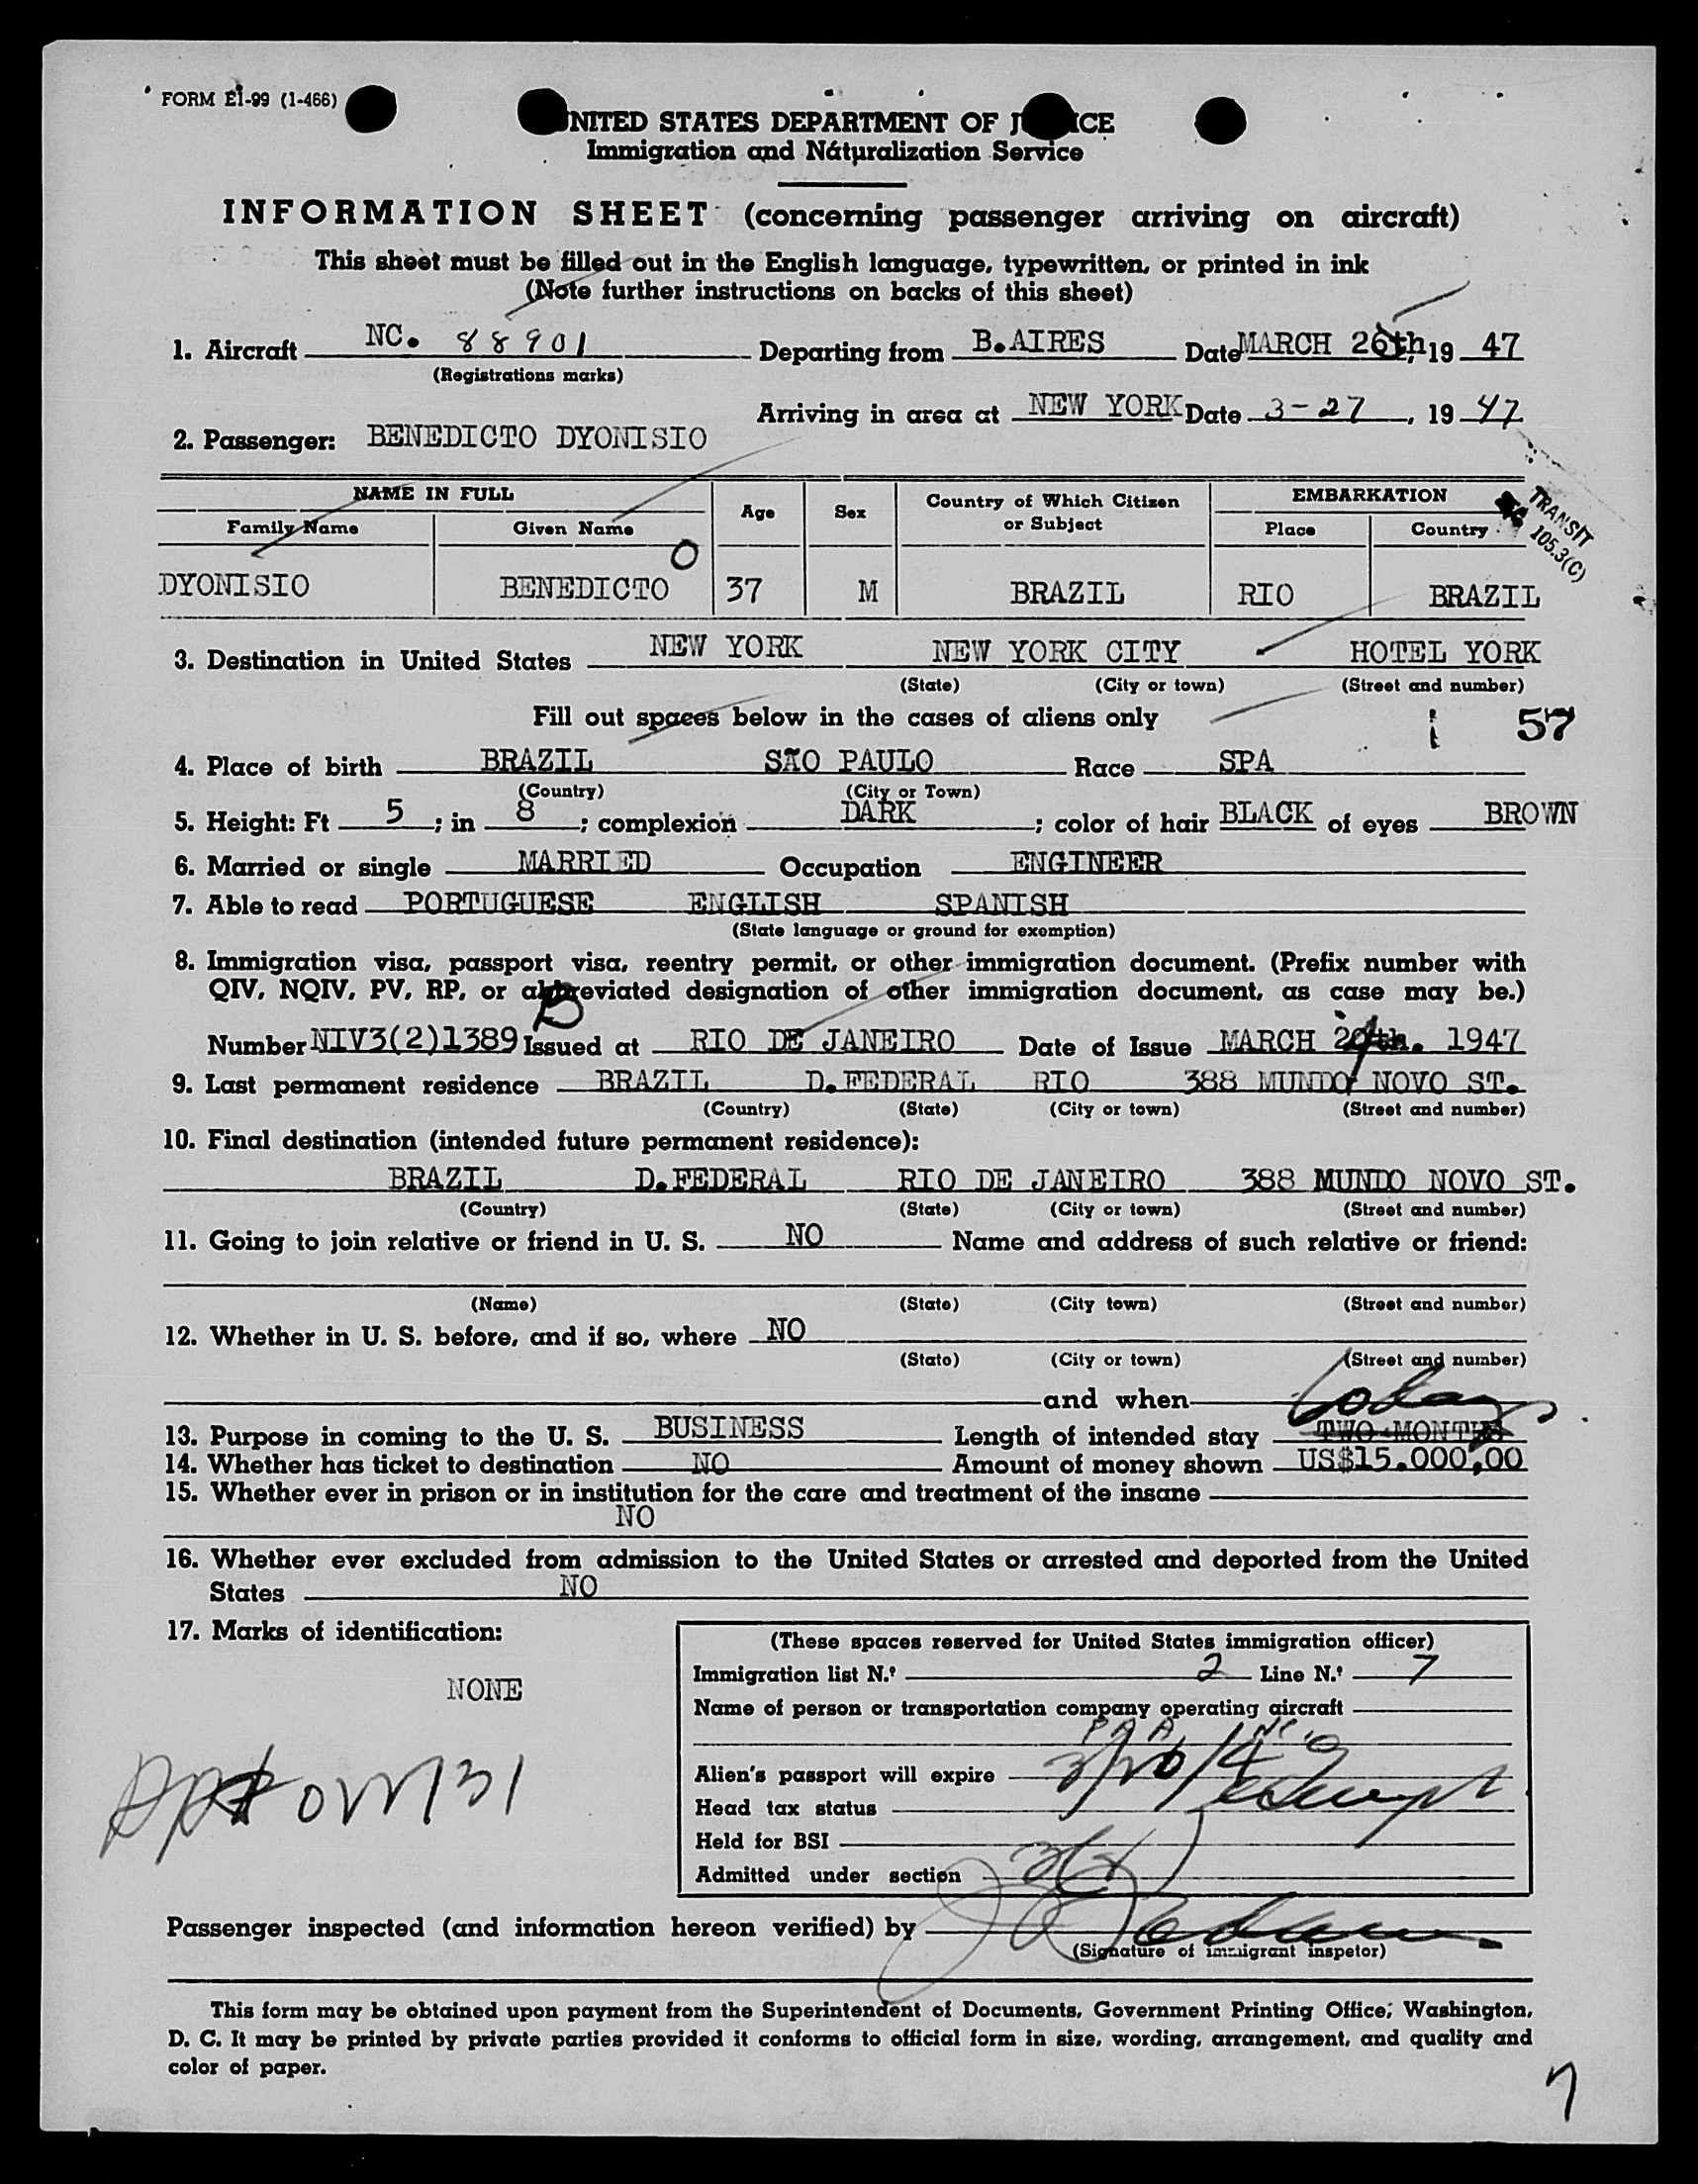 FORM EI-99 (1-466)
UNITED STATES DEPARTMENT OF J CE
Immigration and Naturalization Service
INFORMATION SHEET (concerning passenger arriving on aircraft)
This sheet must be filled out in the English language, typewritten, or printed in ink
(Note further instructions on backs of this sheet)
1. Aircraft NC. 88901 Departing from B.AIRES Date MARCH 26th, 19 47
(Registrations marks)
Arriving in area at NEW YORK Date 3-27, 19 47
2. Passenger: BENEDICTO DYONISIO
NAME IN FULL Age Sex Country of Which Citizen or Subject EMBARKATION
Family Name Given Name Place Country
TRANSIT
105.3(C)
DYONISIO BENEDICTO O 37 M BRAZIL RIO BRAZIL
3. Destination in United States NEW YORK NEW YORK CITY HOTEL YORK
(State) (City or town) (Street and number)
Fill out spaces below in the cases of aliens only 57
4. Place of birth BRAZIL SÃO PAULO Race SPA
(Country) (City or Town)
5. Height: Ft 5; in 8; complexion DARK; color of hair BLACK of eyes BROWN
6. Married or single MARRIED Occupation ENGINEER
7. Able to read PORTUGUESE ENGLISH SPANISH
(State language or ground for exemption)
8. Immigration visa, passport visa, reentry permit, or other immigration document. (Prefix number with
QIV, NQIV, PV, RP, or abbreviated designation of other immigration document, as case may be.)
B
Number NIV3(2)1389 Issued at RIO DE JANEIRO Date of Issue MARCH th. 1947
9. Last permanent residence BRAZIL D.FEDERAL RIO 388 MUNDO NOVO ST.
(Country) (State) (City or town) (Street and number)
10. Final destination (intended future permanent residence):
BRAZIL D.FEDERAL RIO DE JANEIRO 388 MUNDO NOVO ST.
(Country) (State) (City or town) (Street and number)
11. Going to join relative or friend in U. S. NO Name and address of such relative or friend:
(Name) (State) (City town) (Street and number)
12. Whether in U. S. before, and if so, where NO
(State) (City or town) (Street and number)
and when
60 days
13. Purpose in coming to the U. S. BUSINESS Length of intended stay TWO MONTHS
14. Whether has ticket to destination NO Amount of money shown US$15.000,00
15. Whether ever in prison or in institution for the care and treatment of the insane
NO
16. Whether ever excluded from admission to the United States or arrested and deported from the United
States NO
17. Marks of identification:
NONE
(These spaces reserved for United States immigration officer)
Immigration list N.º 2 Line N.º 7
Name of person or transportation company operating aircraft
PAA
Alien's passport will expire
Head tax status
Held for BSI
Admitted under section
Passenger inspected (and information hereon verified) by
(Signature of immigrant inspetor)
This form may be obtained upon payment from the Superintendent of Documents, Government Printing Office; Washington,
D. C. It may be printed by private parties provided it conforms to official form in size, wording, arrangement, and quality and
color of paper.
7